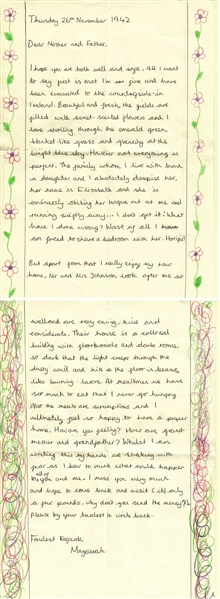 Thursday 26th November 1942
Dear Mother and Father,
I hope you are both well and safe. All I want
to say first is that I'm so fine and have
been evacuated to the countryside in
Ireland. Beautiful and fresh, the fields are
filled with sweet-scented flowers and I
love strolling through the emerald green,
blanket like grass and glancing at the
bright blue sky. However not everything is
perfect. The family whom I live with have
a daughter and I absolutely despise her,
her name is Elizabeth and she is
continuously sticking her tongue out at me and
running swiftly away... I don't get it! What
have I done wrong? Worst of all I have
been forced to share a bedroom with her. Horrific!
But apart from that I really enjoy my new
home, Mr and Mrs Johnson look after me so
well and are very caring, kind and
considerate. Their house is a colossal
building with floorboards and dark rooms
so dark that the light creeps through the
dusty and hits the floor in beams
like burning. At mealtimes we have
so much to eat that I never go hungry.
the meals are scrumptious and I
ultimately feel so happy to have a proper
home. How are you feeling? How are grand-
mother and grandfather? Whilst I am
writing this my hands are shaking with
fear as I dear to think what could happen
to you and me. I miss you very much
and hope to come back and visit (it's only
a few pounds. Why don't you send the money??)
please try your hardest to write back.
Fondest Regards,